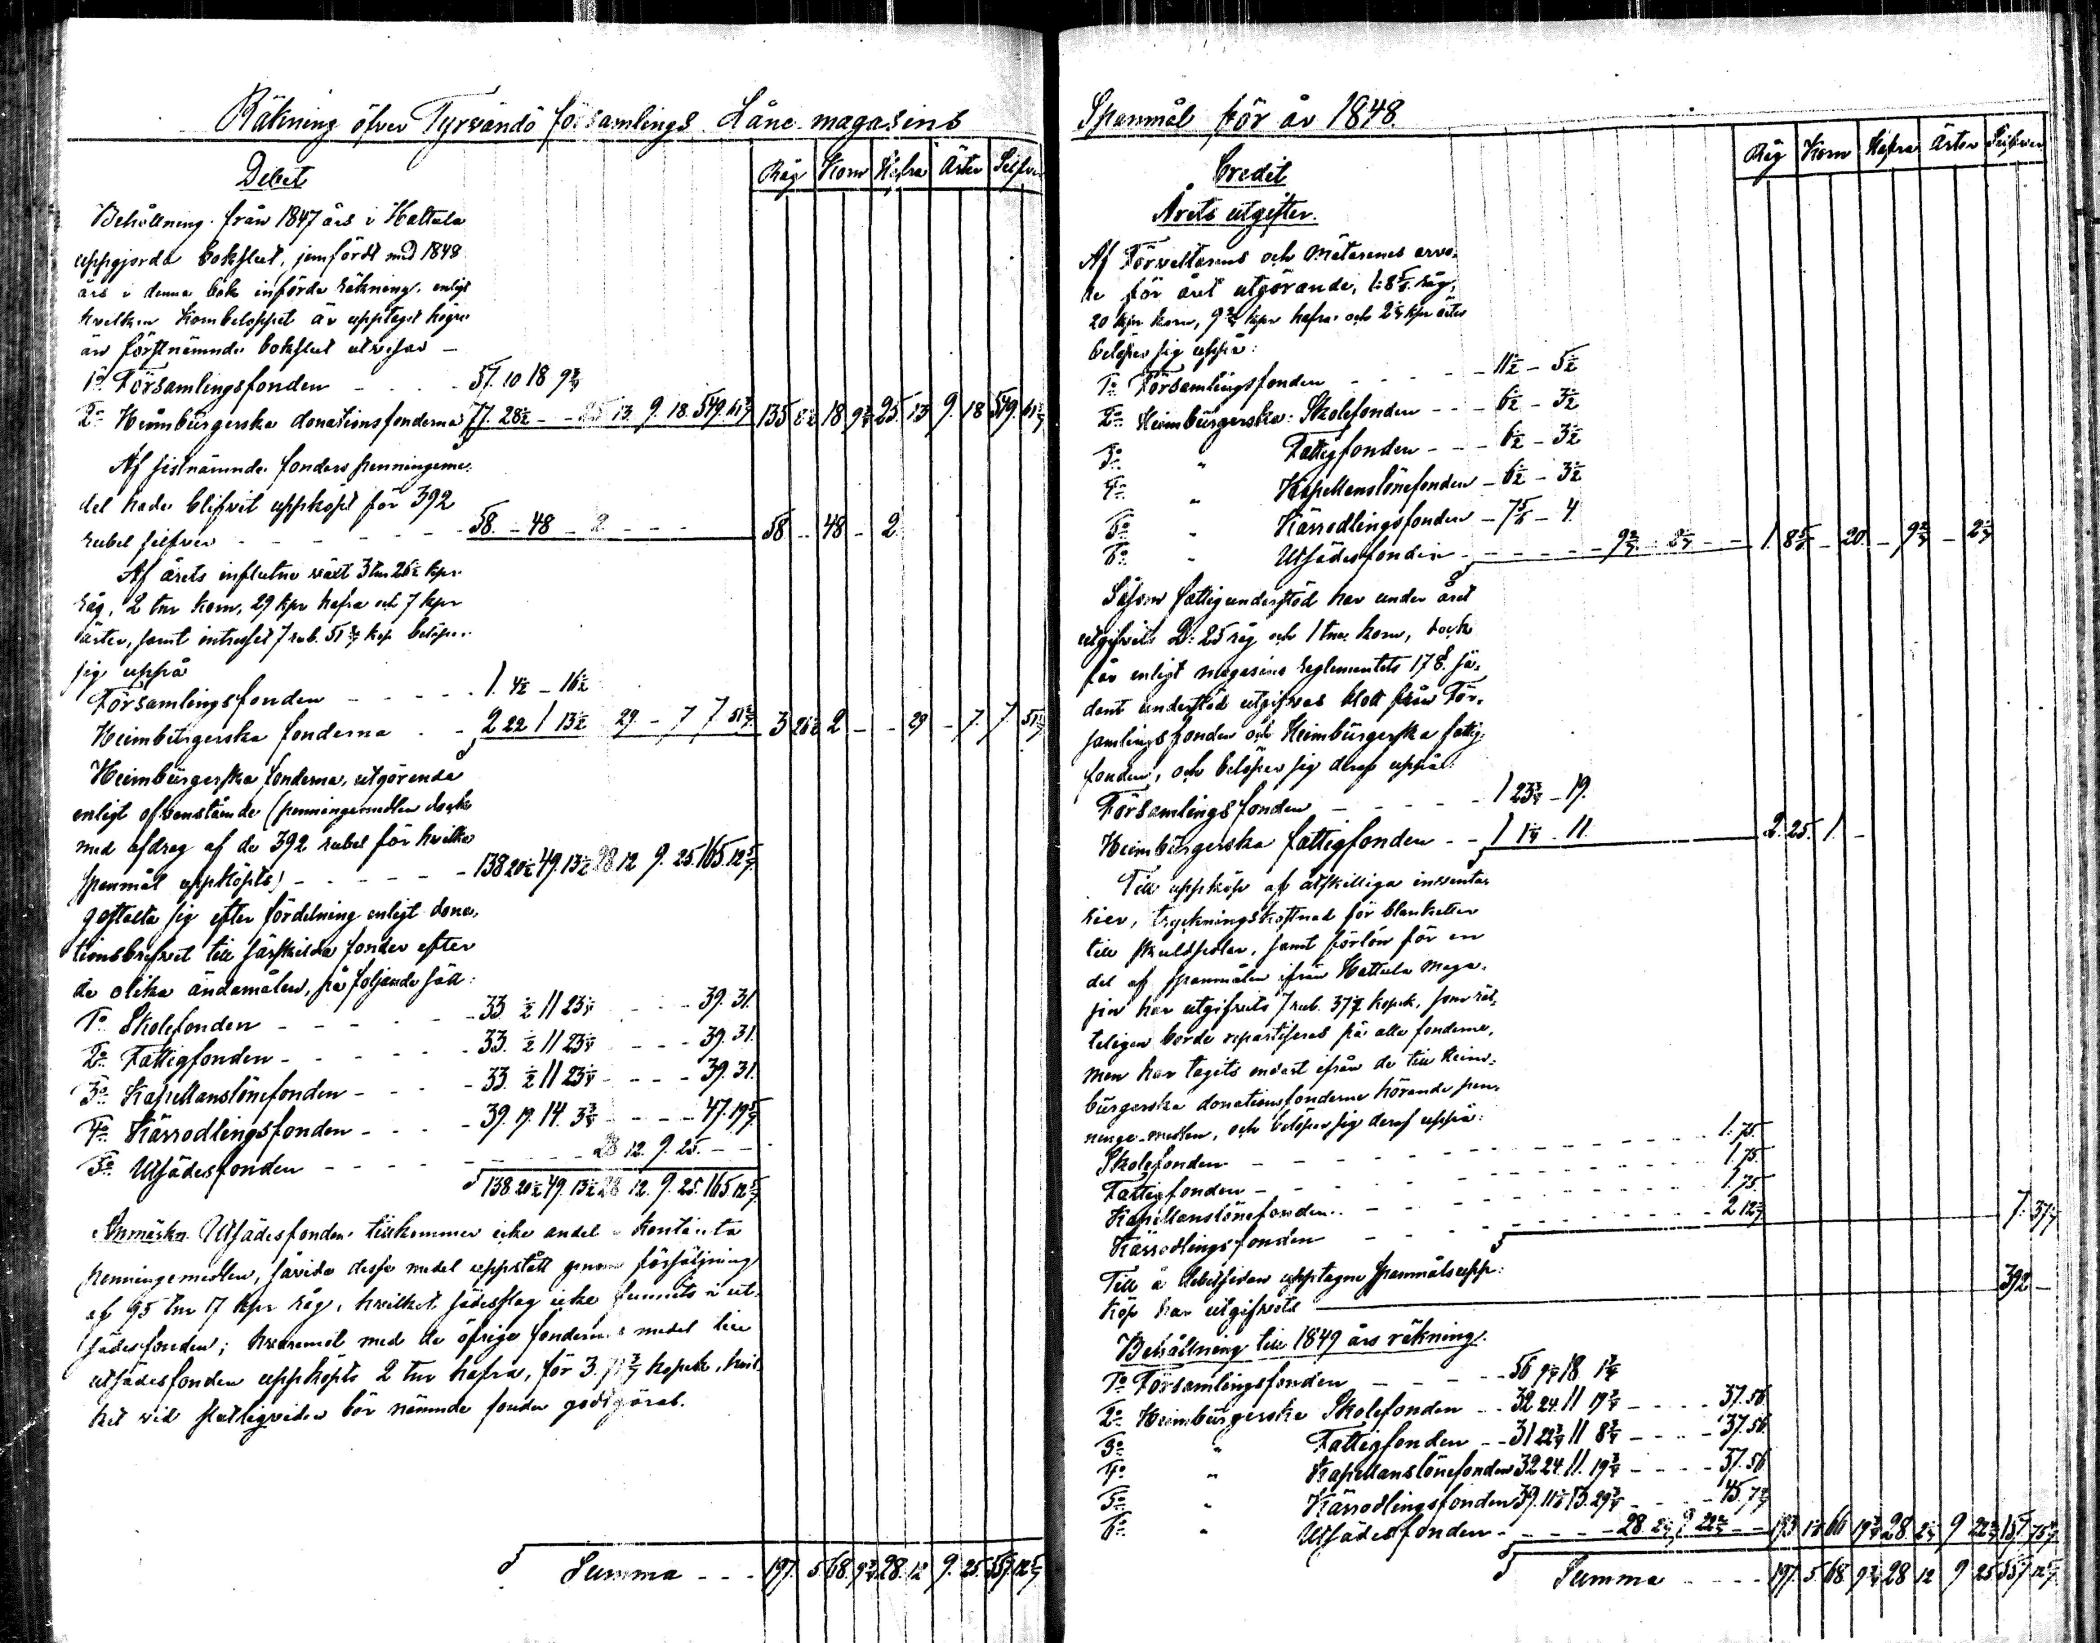 Räkning öfver Tyrvändö församlings Låne-magasins
Debet
Råg Korn Hafra Ärter Silfver
Behållning från 1847 års i Hattula
uppgjorda bokslut, jemfördt med 1848
års i denna bok införda räkning, enligt
hvilken Kornbeloppet är upptaget högre
än förstnämnde bokslut utvisar —
1o Församlingsfonden - - - 57. 10 18 9¾
2o Heimbürgerska donationsfonderna 77. 28½ - - 25 13 9. 18. 549. 61 135 8½ 18 9¾ 25. 13 9. 18 549. 61
Af sistnämnde fonders penningeme-
del hade blifvit uppköpt för 392
rubel silfver - - - - - 58. - 48 - 2. - - - 58 - 48 - 2.
Af årets influtne växt 3 tnr 26½ kpr
råg, 2 tnr korn, 29 kpr hafra och 7 kpr
ärter, samt intresset 7 rub. 51 kop. belöper
sig uppå
Församlingsfonden - - - - 1. 4½ - 16½
Heimbürgerska fonderna - - 2 22 1 13½ 29 - 7 7 51 3 26½ 2 - - 29 - 7. 7. 51
Heimbürgerska fonderna, utgörende
enligt ofvanstående (penningemedlen dock
med afdrag af de 392 rubel för hvilka
spanmål uppköpts) - - - - 138 20½ 49. 13½ 28 12 9. 25. 165. 12
gestalta sig efter fördelning enligt dona-
tionsbrefvet till särskilda fonder efter
de olika ändamålen, på följande sätt:
1o Skolefonden - - - - 33. ½ 11 23¼ - - - 39. 31.
2o Fattigfonden - - - - 33. ½ 11 23¼ - - - 39. 31.
3o Kapellanslönefonden - - - 33. ½ 11 23¼ - - - 39. 31.
4o Kärrodlingsfonden - - - 39. 19. 14. 3¾ - - - 47. 19
5o Utsädesfonden - - - - 28 12. 9. 25. - -
138 20½ 49. 13½ 28 12. 9. 25. 165 12
Anmärkn. Utsädesfonden tillkommer icke andel i kontanta
penningemedlen, såvida desse medel uppstått genom försäljning
af 95 tnr 17 kpr råg, hvilket sädesslag icke funnits i ut-
sädesfonden; hvaremot med de öfrige fondernes medel till
utsädesfonden uppköpts 2 tnr hafra, för 3. kopek, hvil-
ket vid slutliqviden bör nämnde fonder godtgöras.
Summa - - - 197. 5 68. 9¾ 28. 12 9. 25. 557. 12
Spanmål för år 1848.
Credit
Råg Korn Hafra Ärter Silfver
Årets utgifter.
Af Förvaltarens och Mätarenes arvo-
de för året utgörande, 1: 8 råg,
20 kpr korn, 9 kpr hafra och 2 kpr ärter
belöper sig uppå:
1o Församlingsfonden - - - - 11½ - 5½
2o Heimbürgerska Skolefonden - - - 6½ - 3½
3o " Fattigfonden - - - 6½ - 3½
4o " Kapellanslönefonden - 6½ - 3½
5o " Kärrodlingsfonden - 7 - 4.
6o " Utsädesfonden - - - - - 9 - 2 - - 1. 8 - 20. - 9 - 2
Såsom fattigunderstöd har under året
utgifvits 2: 25 råg och 1 tna korn, dock
får enligt magasins Reglementets 17 §. så-
dant understöd utgifvas blott från För-
samlingsfonden och Heimbürgerska fattig-
fonden, och belöper sig deraf uppå:
Församlingsfonden - - - - 1 23¾ - 19.
Heimbürgerska fattigfonden - - 1 1¼ - 11. 2. 25. 1. -
Till uppköp af åtskilliga inventa-
rier, tryckningskostnad för blanketter
till skuldsedlar, samt förlön för en
del af spanmålen ifrån Hattula maga-
sin har utgifvits 7 rub. 37 kopek, som rät-
teligen borde repartiseras på alla fonderne,
men har tagits endast ifrån de till Heim-
bürgerska donationsfonderne hörande pen-
ninge-medlen, och belöper sig deraf uppå:
Skolefonden - - - - - 1. 75.
Fattigfonden - - - - - 1. 75.
Kapellanslönefonden - - - - 1. 75
Kärrodlingsfonden - - - - 2 12 7. 37
Till å debetsidan upptagne spanmålsupp-
köp har utgifvits 392 -
Behållning till 1849 års räkning.
1o Församlingsfonden - - - - 56 9 18 1¾
2o Heimbürgerska Skolefonden - - 32 24. 11 19¾ - - - 37. 56.
3o " Fattigfonden - - 31 22¾ 11 8¾ - - - 37. 56.
4o " Kapellanslönefonden 32 24. 11. 19¾ - - - 37. 56
5o " Kärrodlingsfonden 39. 11 13. 29¾ - - - 45. 7
6o " Utsädesfonden - - - - 28. 2 9 22 - - 193 1 66 19¾ 28. 2 9 22 157 75
Summa - - - - 197. 5 68 9¾ 28 12 9 25 557. 12